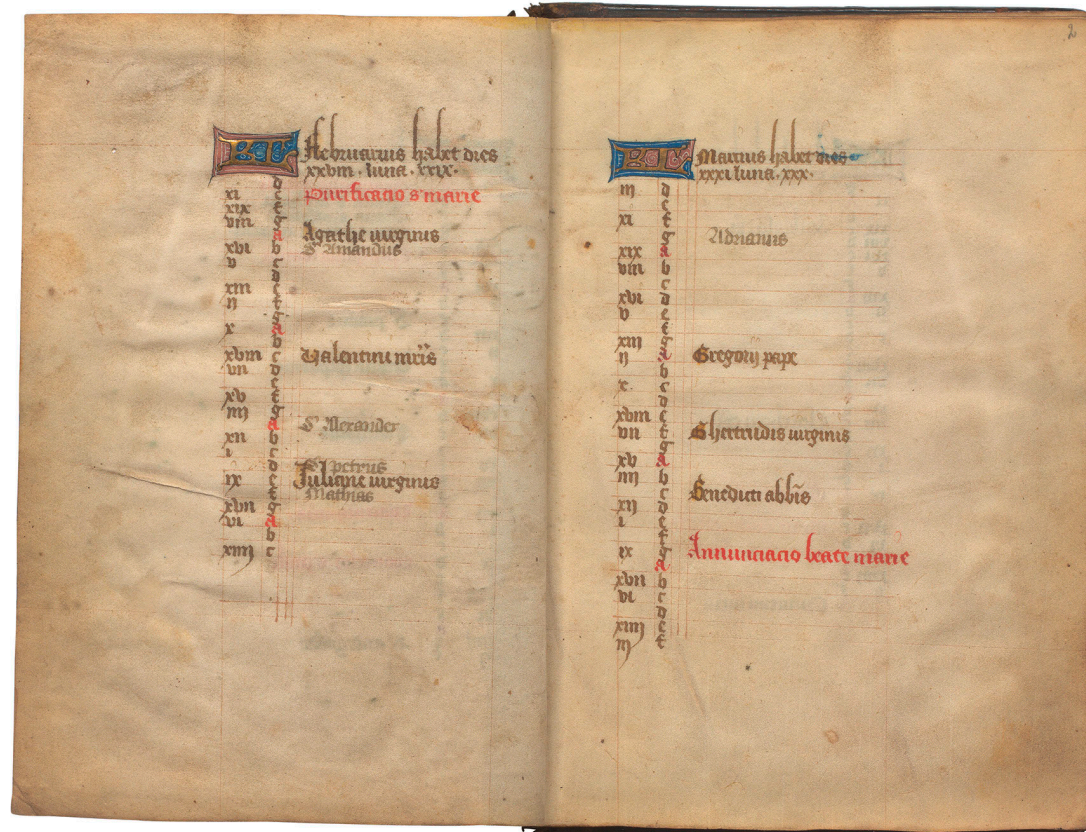 KL Februarius habet dies
xxviii · luna · xxix ·
d
xi e Purificacio s' marie
xix f
viii g
A Agathe virginis
xvi b S' Amandus
v c
d
xiii e
ii f
g
x A
b
xviii c Valentini mr̄is
vii d
e
xv f
iiii g
A S' Alexander
xii b
i c
d S' petrus
ix e Juliane virginis
f Mathias
xvii g
vi A
b
xiiii c
2
KL Marcius habet dies
xxxi luna · xxx ·
iii d
e
xi f
g Adrianus
xix A
viii b
c
xvi d
v e
f
xiii g
ii A Gregorij pape
b
x c
d
xviii e
vii f Ghertrudis virginis
g
xv A
iiii b
c Benedicti abb̄is
xii d
i e
f
ix g Annunciacio beate marie
A
xvii b
vi c
d
xiiii e
iii f